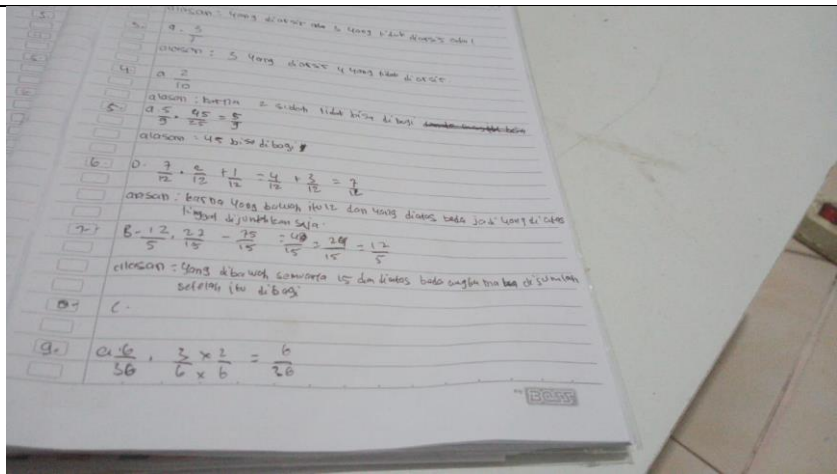 alasan : yang diarsir ada 3 yang tidak diarsir ada 1
3. a. 5/7
alasan : 3 yang diarsir 4 yang tidak diarsir
4. a. 2/10
alasan : karna 2 sudah tidak bisa di bagi
5. a. 5/9 . 45/25 = 5/9
alasan : 45 bisa dibagi
6. D. 7/12 . 2/12 + 1/12 = 4/12 + 3/12 = 7/12
alasan : karna yang bawah itu 12 dan yang diatas beda jadi yang diatas
tinggal dijumlahkan saja.
7. B. 12/5 . 22/15 - 75/15 = /15 = /15 = 12/5
alasan : yang dibawah semuanya 15 dan diatas beda angka di jumlah
setelah itu dibagi
C.
9. a. 6/36 . 3/6 x 2/6 = 6/36
BOSS